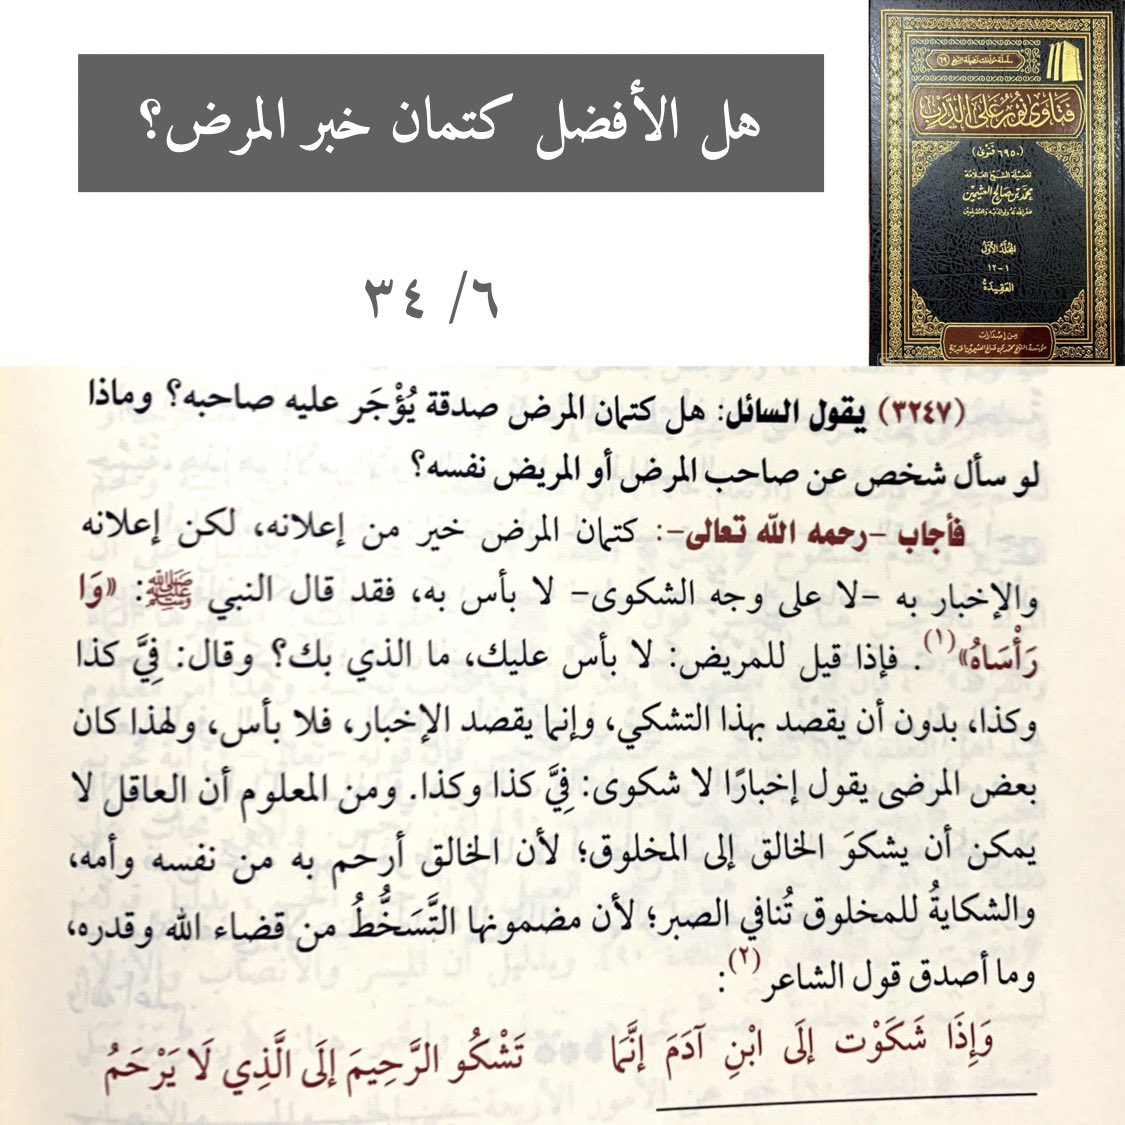 هل الأفضل كتمان خبر المرض؟
سلسلة مؤلفات فضيلة الشيخ (٦٩)
فتاوى نور على الدرب
(٦٩٥٠ فتوى)
لفضيلة الشيخ العلامة
محمد بن صالح العثيمين
غفر الله له ولوالديه وللمسلمين
المجلد الأول
١-١٢
العقيدة
من إصدارات
مؤسسة الشيخ محمد بن صالح العثيمين الخيرية
٦/ ٣٤
(٣٢٤٧) يقول السائل: هل كتمان المرض صدقة يُؤْجَر عليه صاحبه؟ وماذا
لو سأل شخص عن صاحب المرض أو المريض نفسه؟
فأجاب -رحمه الله تعالى-: كتمان المرض خير من إعلانه، لكن إعلانه
والإخبار به -لا على وجه الشكوى- لا بأس به، فقد قال النبي ﷺ: «وَا
رَأْسَاهُ»(١). فإذا قيل للمريض: لا بأس عليك، ما الذي بك؟ وقال: فِيَّ كذا
وكذا، بدون أن يقصد بهذا التشكي، وإنما يقصد الإخبار، فلا بأس، ولهذا كان
بعض المرضى يقول إخبارًا لا شكوى: فِيَّ كذا وكذا. ومن المعلوم أن العاقل لا
يمكن أن يشكوَ الخالق إلى المخلوق؛ لأن الخالق أرحم به من نفسه وأمه،
والشكايةُ للمخلوق تُنافي الصبر؛ لأن مضمونها التَّسَخُّطُ من قضاء الله وقدره،
وما أصدق قول الشاعر(٢):
وَإِذَا شَكَوْت إلَى ابْنِ آدَمَ إنَّمَا تَشْكُو الرَّحِيمَ إلَى الَّذِي لَا يَرْحَمُ